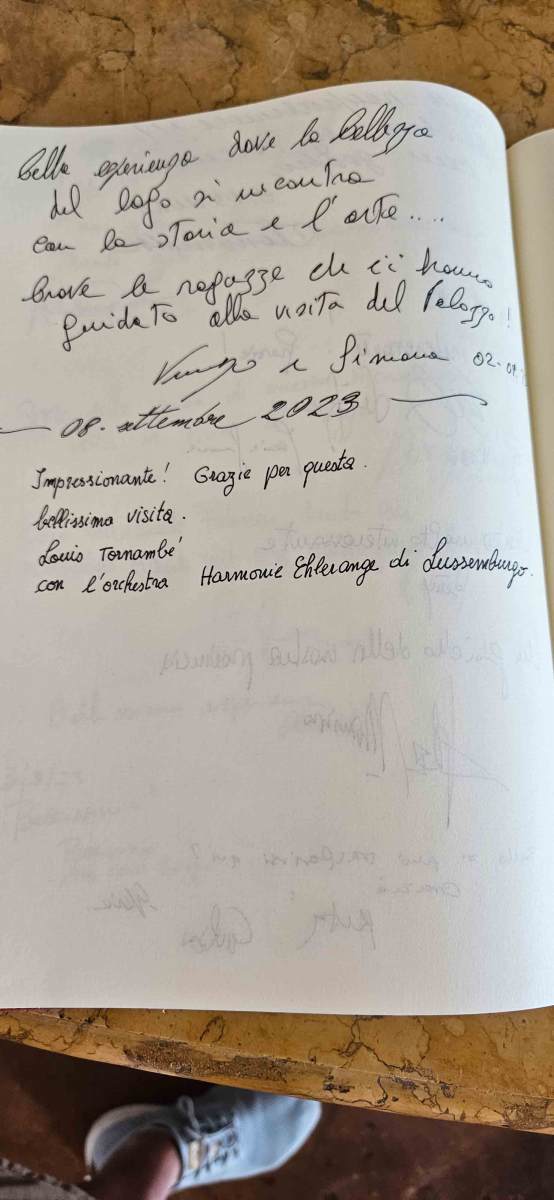 Bella esperienza dove la bellezza
del lago si incontra
con la storia e l'arte....
Brave le ragazze che ci hanno
guidato alla visita del Palazzo!
e Simona 02-09-
— 08. settembre 2023 —
Impressionante! Grazie per questa
bellissima visita.
Louis Tornambé
con l'orchestra Harmonie Ehlerange di Lussemburgo.